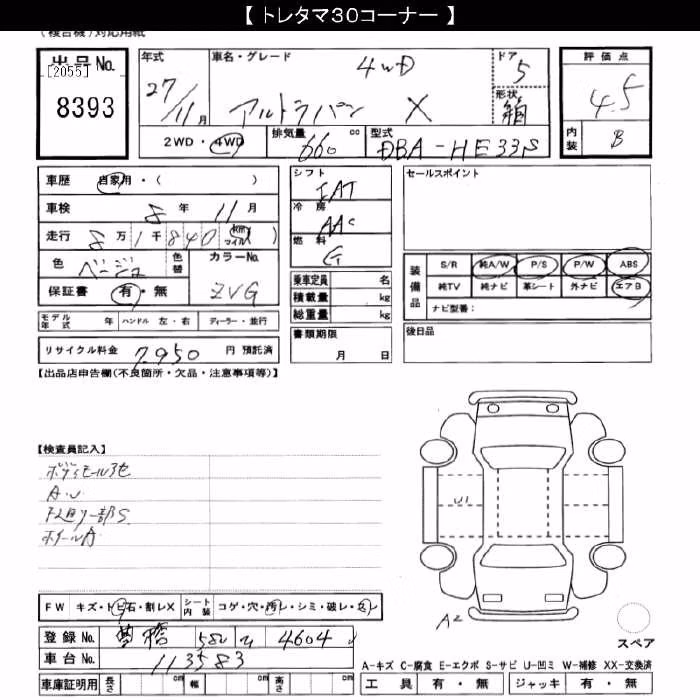 【 トレタマ30コーナー 】
(複合機)対応用紙
出品No. [2055] 8393
年式 27/11月
車名・グレード 4WD アルトラパン X
ドア 5
形状 箱
評価点 4.5
内装 B
2WD・4WD
排気量 660 cc
型式 DBA-HE33S
車歴 自家用・( )
車検 8年 11月
走行 8万1千840 km マイル ( )
色 ベージュ 色替
カラーNo. ZVG
保証書 有・無
モデル年式 年 ハンドル 左・右 ディーラー・並行
リサイクル料金 7,950 円 預託済
シフト IAT
冷房 AAC
燃料 G
乗車定員 名
積載量 kg
総重量 kg
書類期限 月 日
セールスポイント
装備品 S/R 純A/W P/S P/W ABS
純TV 純ナビ 革シート 外ナビ エアB
ナビ型番:
後日品
【出品店申告欄(不良箇所・欠品・注意事項等)】
【検査員記入】
ボディモール3セ
A.U
下廻リ一部S
ホイールA
U1
A2
スペア
FW キズ・トビ石・割レX シート内装 コゲ・穴・汚レ・シミ・破レ・スレ
登録No. 豊橋 582 4604
車台No. 113583
車庫証明用 長さ cm 幅 cm 高さ cm
A-キズ C-腐食 E-エクボ S-サビ U-凹ミ W-補修 XX-交換済
工具 有・無 ジャッキ 有・無